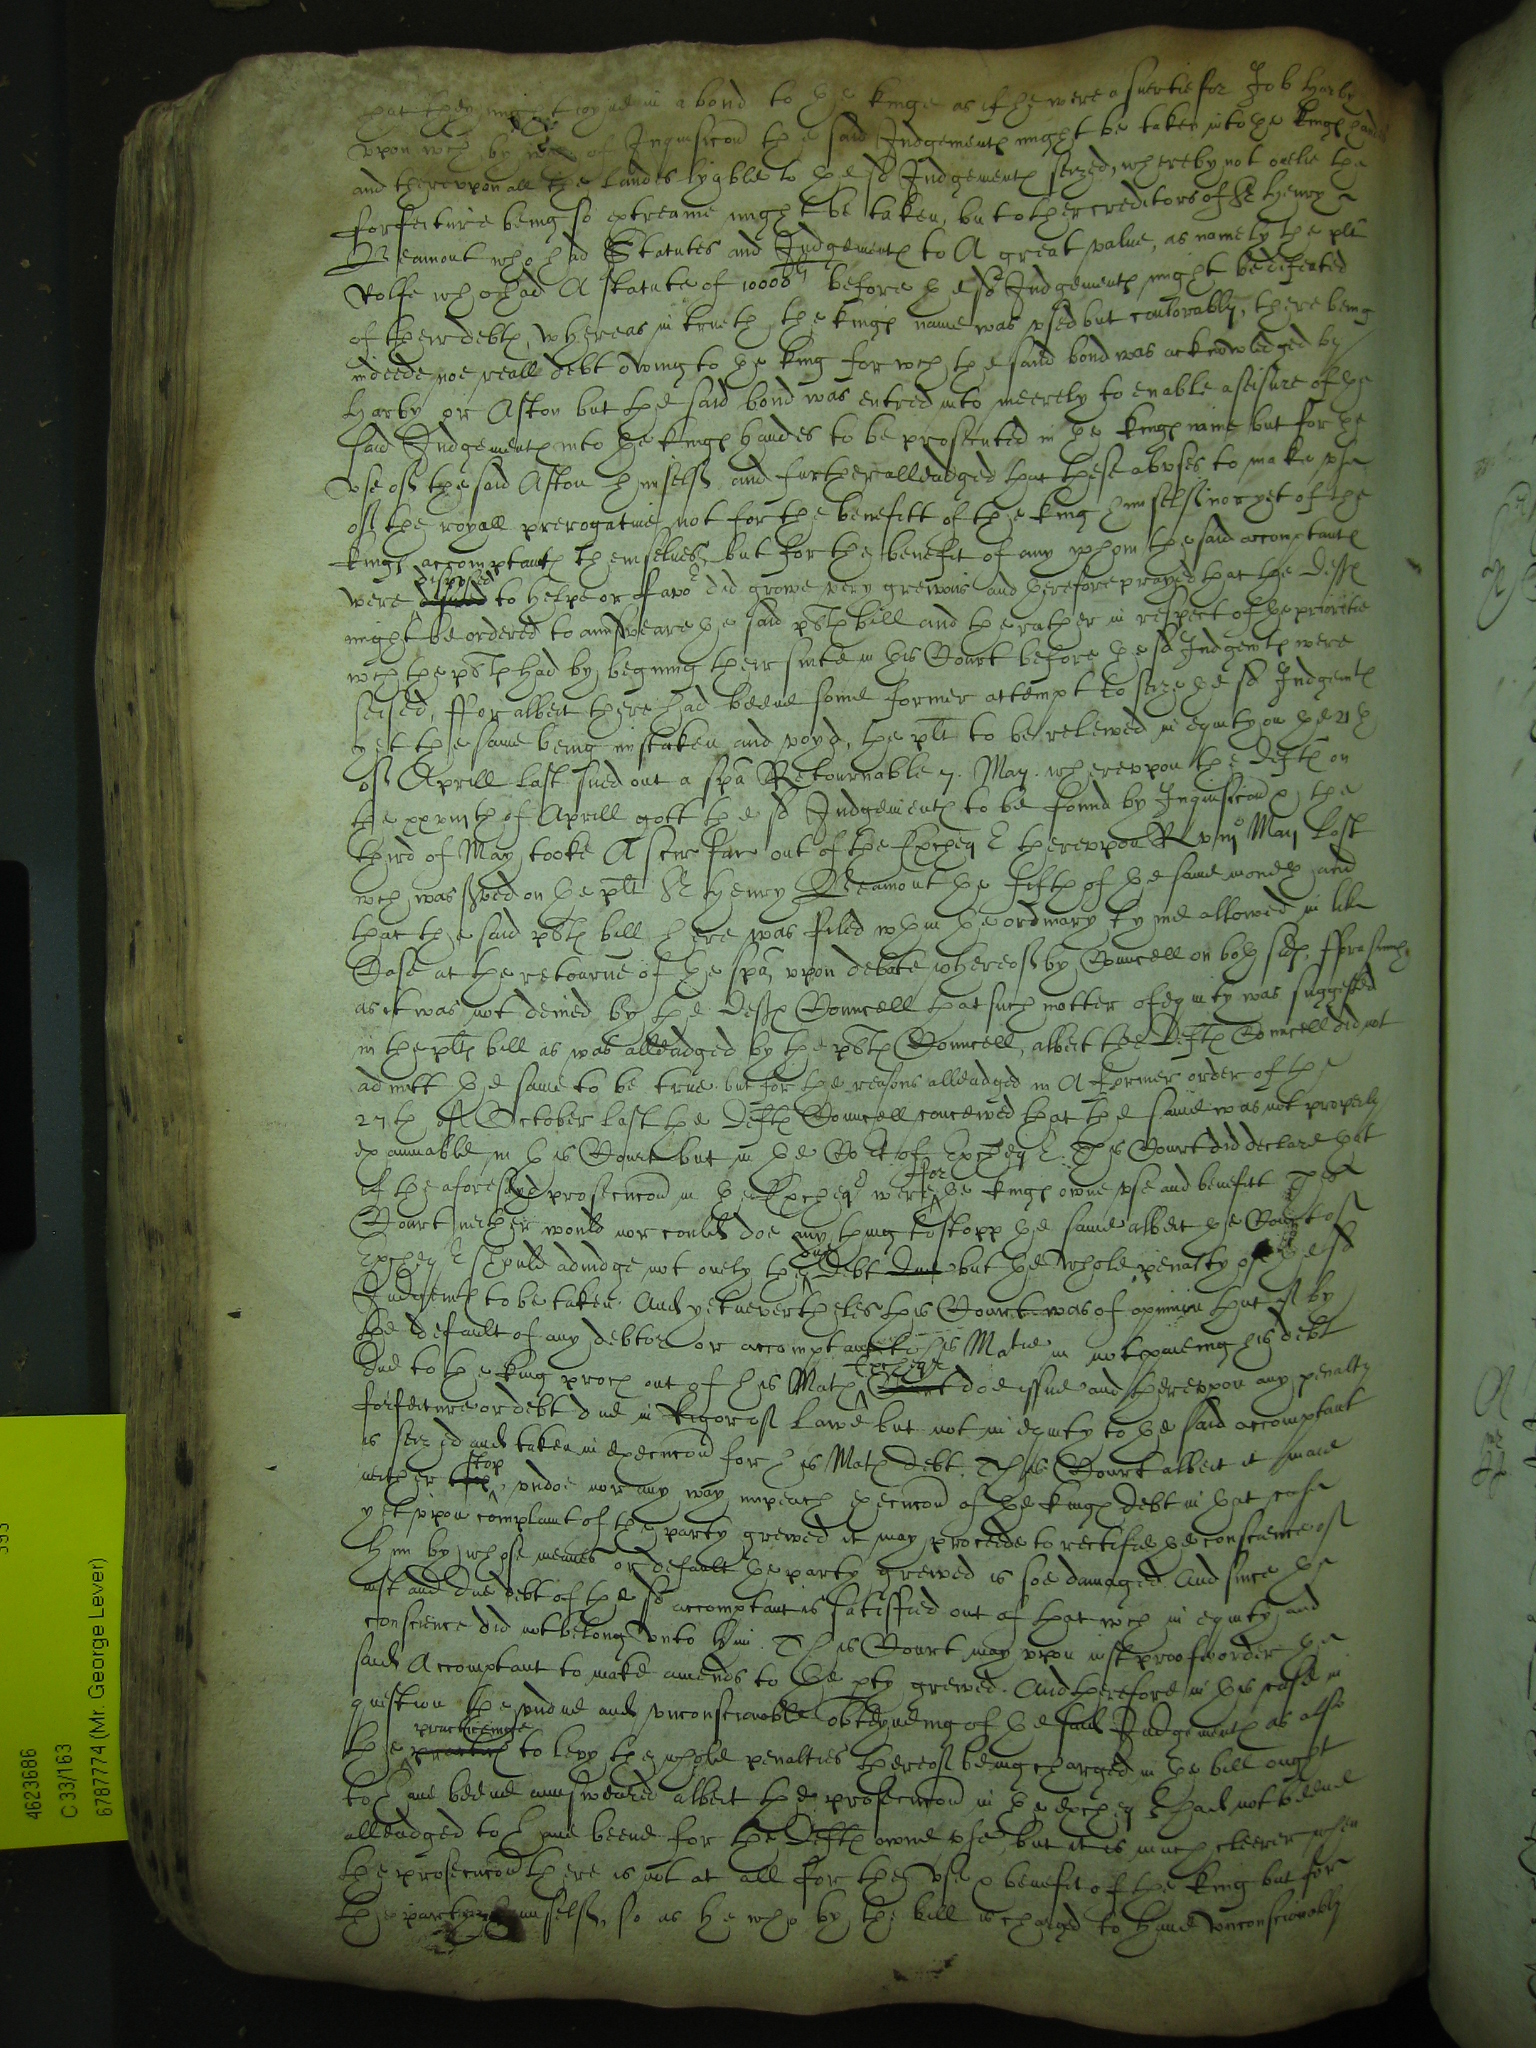 that they might joyne in a bond to the kinge as if he were a suertie for Job Harby
vpon wch by way of Inquisicon the said Judgementes might be taken into the kinges handes
and therevpon all the landes lyable to the sd Judgementes seized, whereby not onelie the
forfeiture being so extreame might be taken, but other creditors of Sr Henry
Beamont who had Statutes and Judgementes to A great value, as namely the plt
Rolfe who had A statute of 10000li before the sd Judgementes might be defeated
of their debtes, whereas in trueth the kinges name was vsed but coulorably, there being
indeede noe reall debt owing to the king for wch the said bond was acknowledged by
Harby or Aston but the said bond was entred into meerely to enable a seisure of the
said Judgementes into the kinges handes to be prosecuted in the kinges name but for the
vse of the said Aston himself, and further alleadged that these abuses to make vse
of the royall prerogative, not for the benefitt of the king himself nor yet of the
kinges accomptantes themselves, but for the benefit of any whom the said accomptantes
were disposed to helpe or favor did growe very greivous and therefore prayed that the deftes
might be ordered to annsweare the said pltes bill and the rather in respect of the prioritie
wch the pltes had by begining their suite in this Court before the sd Judgemtes were
seised, ffor albeit there had beene some former attempt to seize the sd Judgemtes
yet the same being mistaken and voyd, the plt to be releived in equity on the 21th
of Aprill last sued out a spa Retournable 7. May. wherevpon the deftes on
the xxviijth of Aprill gott the sd Judgementes to be found by Inquisicon & the
third of May tooke A scire fac out of the Excheqr therevpon R viijo May last
wch was served on the plt Sr Henry Beamont the fifth of the same moneth, and
that the said pltes bill here was filed wthin the ordinary tyme allowed in like
Case at the retourne of the spa, vpon debate whereof by Councell on both sides, fforasmuch
as it was not denied by the deftes Councell that such matter of equity was suggested
in the pltes bill as was alleadged by the pltes Councell, albeit the deftes Councell did not
admitt the same to be true but for the reasons alleadged in A former order of the
27th of October last the deftes Councell conceived that the same was not properly
examinable in this Court but in the Court of Excheqr. This Court did declare that
if the aforesayd prosecucon in the Excheqr were ffor the kinges owne vse and benefitt This
Court neither would nor could doe any thing to stopp the same albeit the Court of
Excheqr should adiudge not onely the due debt due but the whole penalty of the sd
Judgemtes to be taken. And yet neverthelesse this Court was of opinion that if by
the default of any debtor or accomptant to his Matie in not paieing his debt
due to the king proces out of his Maties Excheqr Court doe issue and therevpon any penalty
forfeiture or debt due in Rigor of Lawe but not in equity to the said accomptant
is seized and taken in execucon for his Maties debt. This Court albeit it maie
neither stop, vndoe nor any way impeach execucon of the kinges debt in that case
yet vpon complaint of the party greived it may proceede to rectifie the conscience of
him by whose meanes or default the party greived is soe damaged. And since the
iust and due debt of the sd accomptant is satisfied out of that wch in equity and
conscience did not belong vnto him. This Court may vpon iust proofe order the
said Accomptant to make amends to the pty greived. And therefore in this case in
question the vndue and vnconscionable obteyneing of the said Judgementes as also
the practiceinge practice to levy the whole penalties thereof being charged in the bill ought
to have beene annsweared albeit the prosecucon in the excheqr had not beene
alleadged to have beene for the deftes owne vse, but it is much cleerer when
the prosecucon there is not at all for the vse & benefit of the king but for
the partie himself, so as he who by the bill is charged to have vnconscionably
4623686
C 33/163
6787774 (Mr. George Lever)